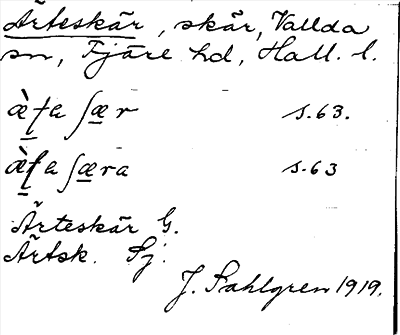 Ärteskär, skär, Vallda
sn, Fjäre hd, Hall. l.
s. 63.
s. 63
Ärteskär G.
Ärtsk. Sj.
J. Sahlgren 1919.